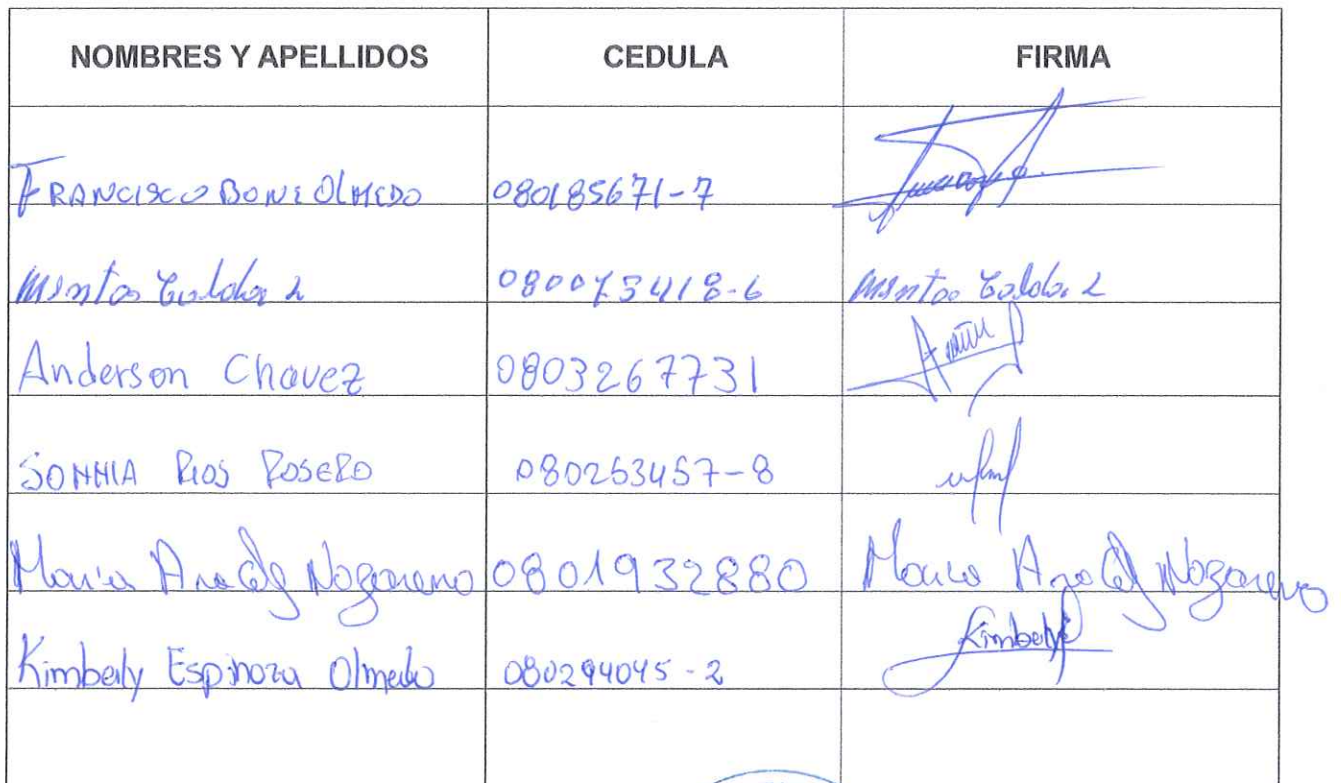 NOMBRES Y APELLIDOS CEDULA FIRMA
FRANCISCO BONE OLMEDO 080185671-7
080073418-6
Anderson Chavez 0803267731
SONNIA RIOS ROSERO 080253457-8
Maria Nazareno 0801932880 Maria Nazareno
Kimberly Espinoza Olmedo 080294045-2 Kimberly